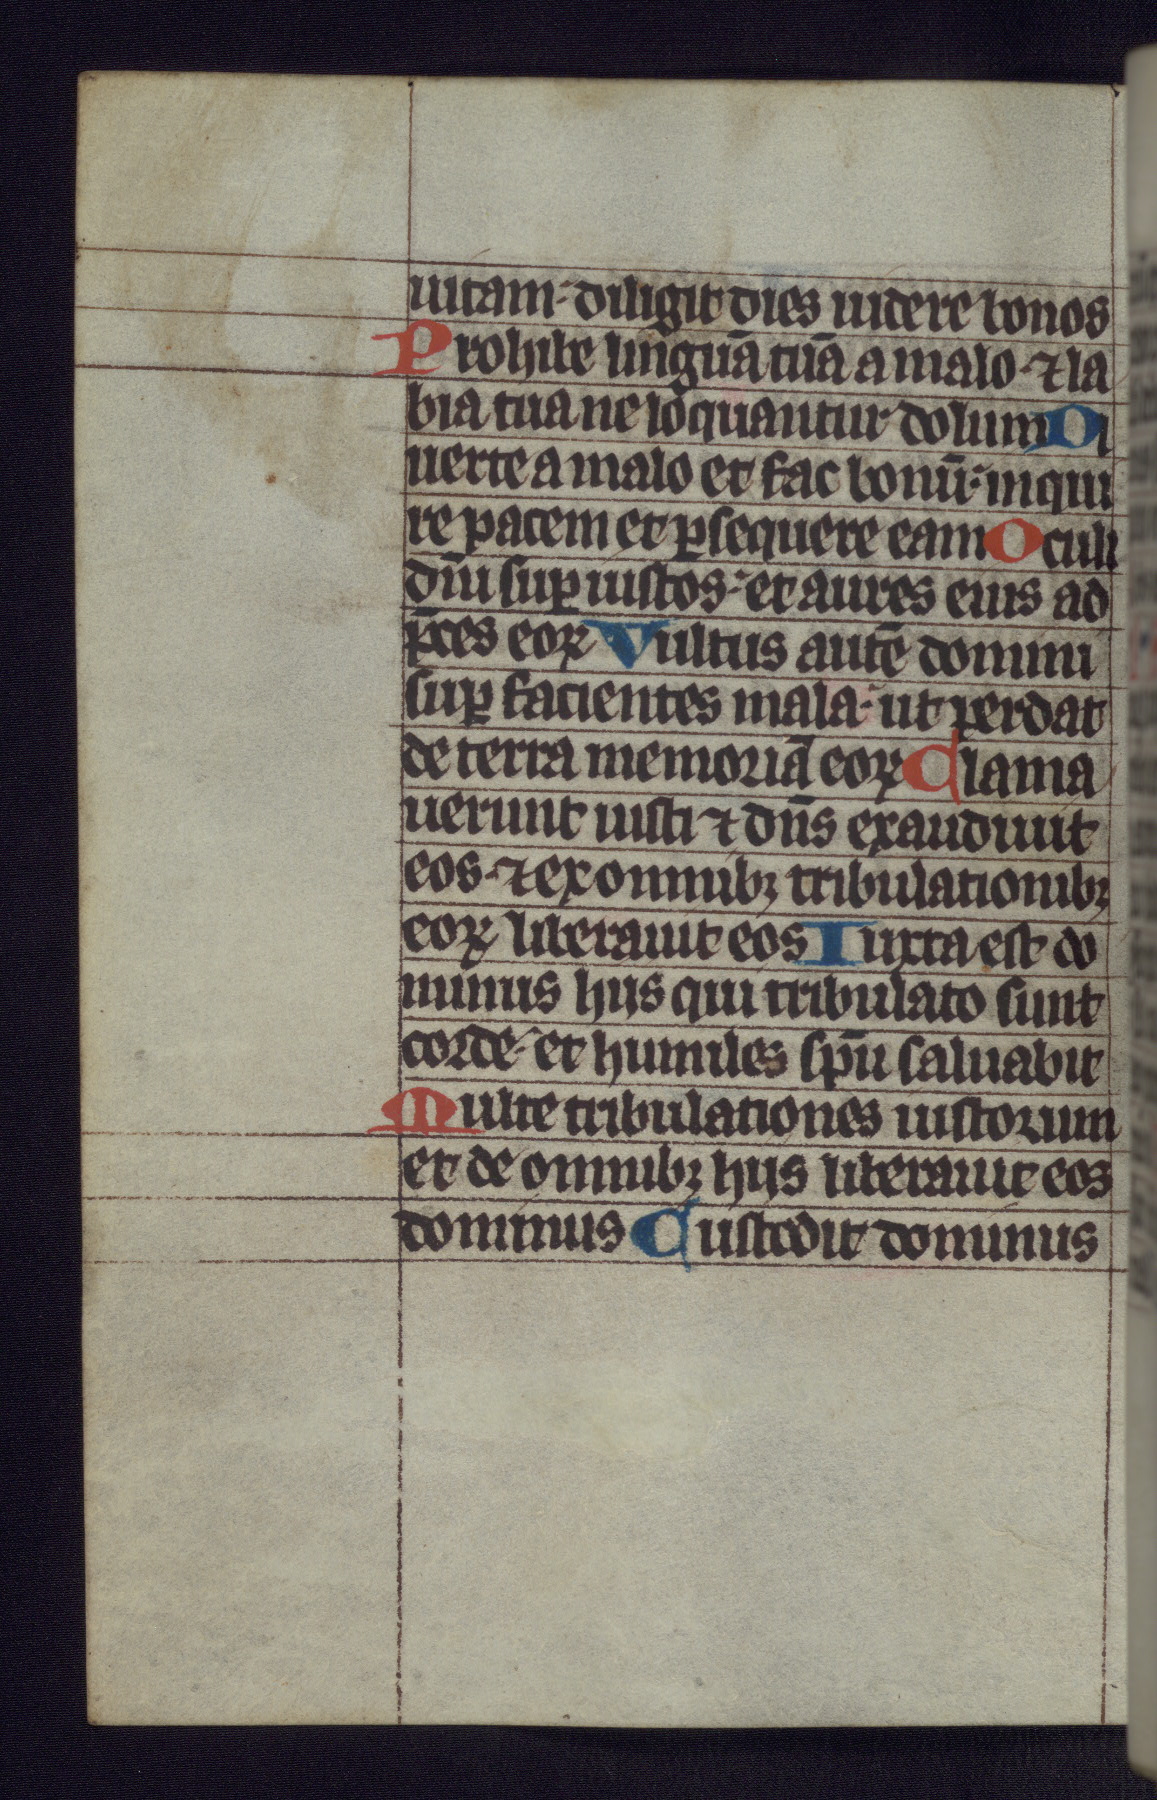 uitam· diligit dies uidere bonos
Prohibe linguā tuā a malo· ⁊ la
bia tua ne loquantur dolum Di
uerte a malo et fac bonū· inqui
re pacem et ꝑsequere eam Oculi
dn̄i suꝑ iustos· et aures eius ad
p̄ces eoꝝ Vultus autē domini
suꝑ facientes mala· ut perdat
de terra memoriā eoꝝ Clama
uerunt iusti ⁊ dn̄s exaudiuit
eos· ⁊ ex omnibꝫ tribulationibꝫ
eoꝝ liberauit eos Iuxta est do
minus hijs qui tribulato sunt
corde· et humiles sp̄u saluabit
Multe tribulationes iustorum
et de omnibꝫ hijs liberauit eos
dominus Custodit dominus